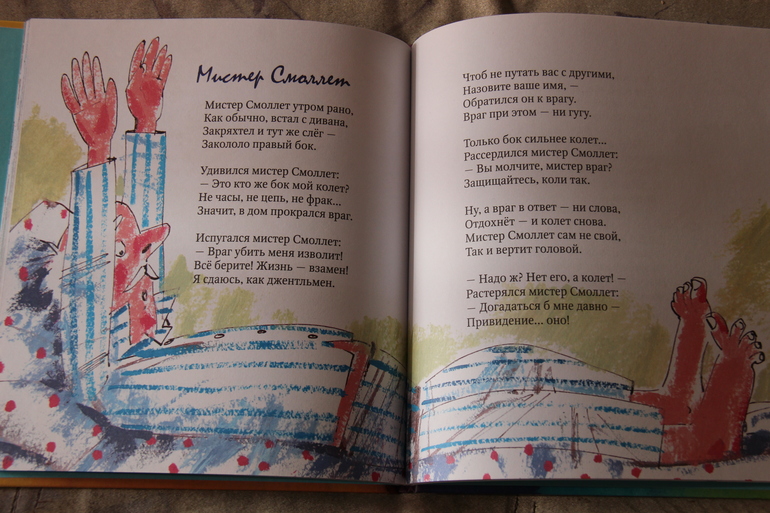 Мистер Смоллет
Мистер Смоллет утром рано,
Как обычно, встал с дивана,
Закряхтел и тут же слёг —
Закололо правый бок.
Удивился мистер Смоллет:
— Это кто же бок мой колет?
Не часы, не цепь, не фрак...
Значит, в дом прокрался враг.
Испугался мистер Смоллет:
— Враг убить меня изволит!
Всё берите! Жизнь — взамен!
Я сдаюсь, как джентльмен.
Чтоб не путать вас с другими,
Назовите ваше имя, —
Обратился он к врагу.
Враг при этом — ни гугу.
Только бок сильнее колет...
Рассердился мистер Смоллет:
— Вы молчите, мистер враг?
Защищайтесь, коли так.
Ну, а враг в ответ — ни слова,
Отдохнёт — и колет снова.
Мистер Смоллет сам не свой,
Так и вертит головой.
— Надо ж? Нет его, а колет! —
Растерялся мистер Смоллет:
— Догадаться б мне давно —
Привидение... оно!